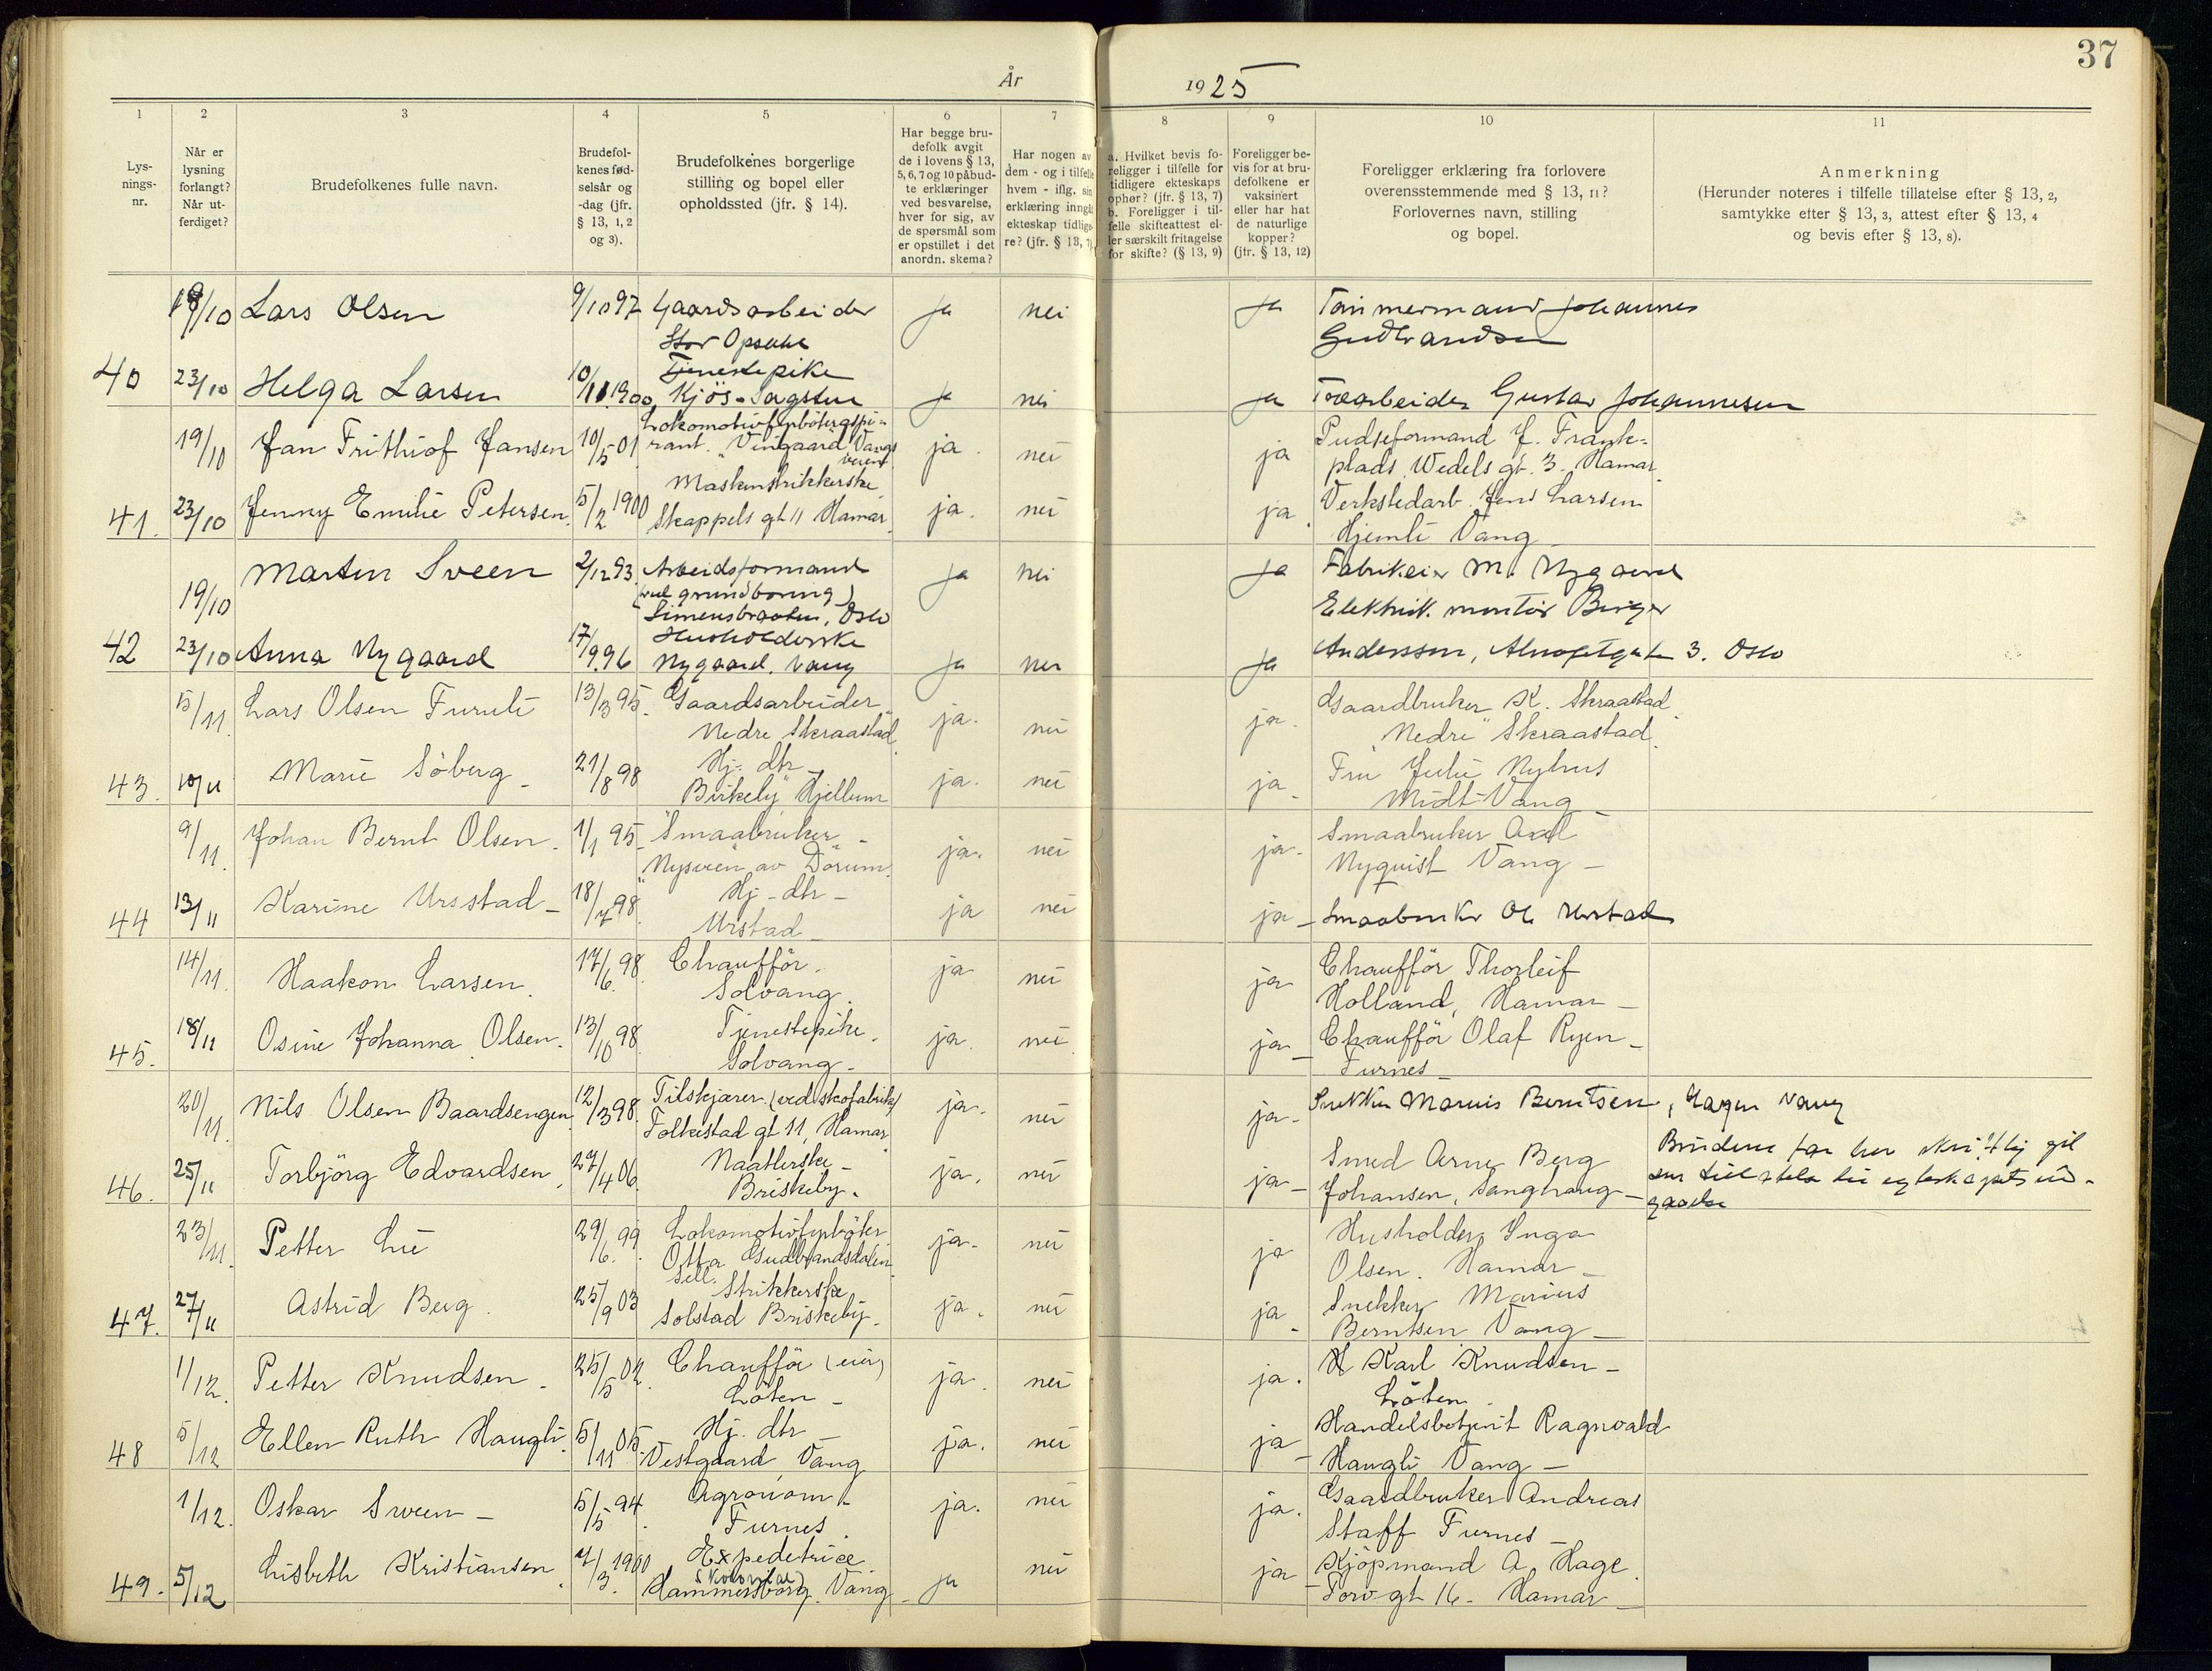 37
År 1925
1
2
3
4
5
6
7
8
9
10
11
Lys-
nings-
nr.
Når er
lysning
forlangt?
Når ut-
ferdiget?
Brudefolkenes fulle navn.
Brudefol-
kenes fød-
selsår og
-dag (jfr.
§ 13, 1, 2
og 3).
Brudefolkenes borgerlige
stilling og bopel eller
opholdssted (jfr. § 14).
Har begge bru-
defolk avgit
de i lovens § 13,
5, 6, 7 og 10 påbud-
te erklæringer
ved besvarelse,
hver for sig, av
de spørsmål som
er opstillet i det
anordn. skema?
Har nogen av
dem - og i tilfelle
hvem - iflg. sin
erklæring inngå
ekteskap tidlige-
re? (jfr. § 13, 7)
a. Hvilket bevis fo-
religger i tilfelle for
tidligere ekteskaps
ophør? (jfr. § 13, 7)
b. Foreligger i til-
felle skifteattest el-
ler særskilt fritagelse
for skifte? (§ 13, 9)
Foreligger be-
vis for at bru-
defolkene er
vaksinert
eller har hat
de naturlige
kopper?
(jfr. § 13, 12)
Foreligger erklæring fra forlovere
overensstemmende med § 13, 11?
Forlovernes navn, stilling
og bopel.
Anmerkning
(Herunder noteres i tilfelle tillatelse efter § 13, 2,
samtykke efter § 13, 3, attest efter § 13, 4
og bevis efter § 13, 8).
19/10 Lars Olsen 9/10 97 Gaardsarbeider ja nei ja Tømmermand Johannes
Stor Opsahl Gudbrandsen
40 23/10 Helga Larsen 10/11 1900 Tjenestepike
Kjös-Sagstuen ja nei ja Træarbeider Gustav Johannesen
19/10 Jan Frithiof Jansen 10/5 01 Lokomotivfyrböteraspi-
rant. "Vingaard" Vangs ja nei ja Pudseformand J. Frank-
plads Wedels gt. 3. Hamar
41. 23/10 Jenny Emilie Petersen 5/2 1900 Maskinstrikkerske
Skappels gt 11 Hamar ja. nei ja. Verkstedarb. Jens Larsen
Hjemli Vang
19/10 Marten Sveen 2/12 93 Arbeidsformand ja nei ja Fabrikeier M. Nygaard
(ved grundboring)
Simensbraaten, Oslo Elektrik. montör Birger
42 23/10 Anna Nygaard 17/9 96 Husholderske
Nygaard, Vang ja nei ja Anderssen, 3. Oslo
5/11 Lars Olsen Furuli 13/3 95. Gaardsarbeider ja. nei ja. Gaardbruker K. Skraastad
Nedre Skraastad Nedre Skraastad
43. 10/11 Marie Söberg 21/8 98 Hj. dtr
Birkely Hjellum ja. nei ja. Fru Julie Nyhus
Midt-Vang
9/11. Johan Bernt Olsen. 1/1 95 Smaabruker ja. nei ja. Smaabruker Axel
"Nysveen" av Dörum. Nyquist Vang
44 13/11 Karine Ursstad 18/7 98. Hj-dtr
Urstad ja nei ja Smaabruker Ole Urstad
14/11. Haakon Larsen. 17/6. 98 Chaufför. ja nei ja Chaufför Thorleif
Solvang. Holland, Hamar
45. 18/11 Osine Johanna Olsen. 13/10 98. Tjenestepike.
Solvang. ja. nei ja Chaufför Olaf Ryen
Furnes
20/11. Nils Olsen Baardsengen 12/3 98. Tilskjærer (ved skofabrikk) ja. nei ja Snekker Marius Berntsen, Hagen Vang
Folkestad gt 11, Hamar
46. 25/11 Torbjörg Edvardsen 27/4 06. Naatlerske
Briskeby. ja. nei ja Smed Arne Berg
Johansen, Sanghaug
Brudens far har skriftlig git
sin tillatelse til egteskapets ind-
gaaelse
23/11. Petter Lie 29/6. 99 Lokomotivfyrböter ja. nei ja Husholder Inga
Otta Gudbrandsdalen Olsen. Hamar
Sell.
47. 27/11 Astrid Berg. 25/9 03 Strikkerske
Solstad Briskeby. ja. nei ja Snekker Marius
Berntsen Vang
1/12. Petter Knudsen 25/5 02. Chaufför (eier) ja. nei ja. Karl Knudsen
Löten Löten
48 5/12 Ellen Ruth Haugli 5/11 05. Hj. dtr
Vestgaard, Vang ja. nei ja Handelsbetjent Ragnvald
Haugli Vang
1/12. Oskar Sveen 5/5 94 Agronom ja. nei ja. Gaardbruker Andreas
Furnes Staff Furnes
49. 5/12 Lisbeth Kristiansen 7/3. 1900 Expeditrice
(Kolonial)
Hammersborg. Vang ja nei ja Kjöpmand A. Hage.
Torvgt 16. Hamar